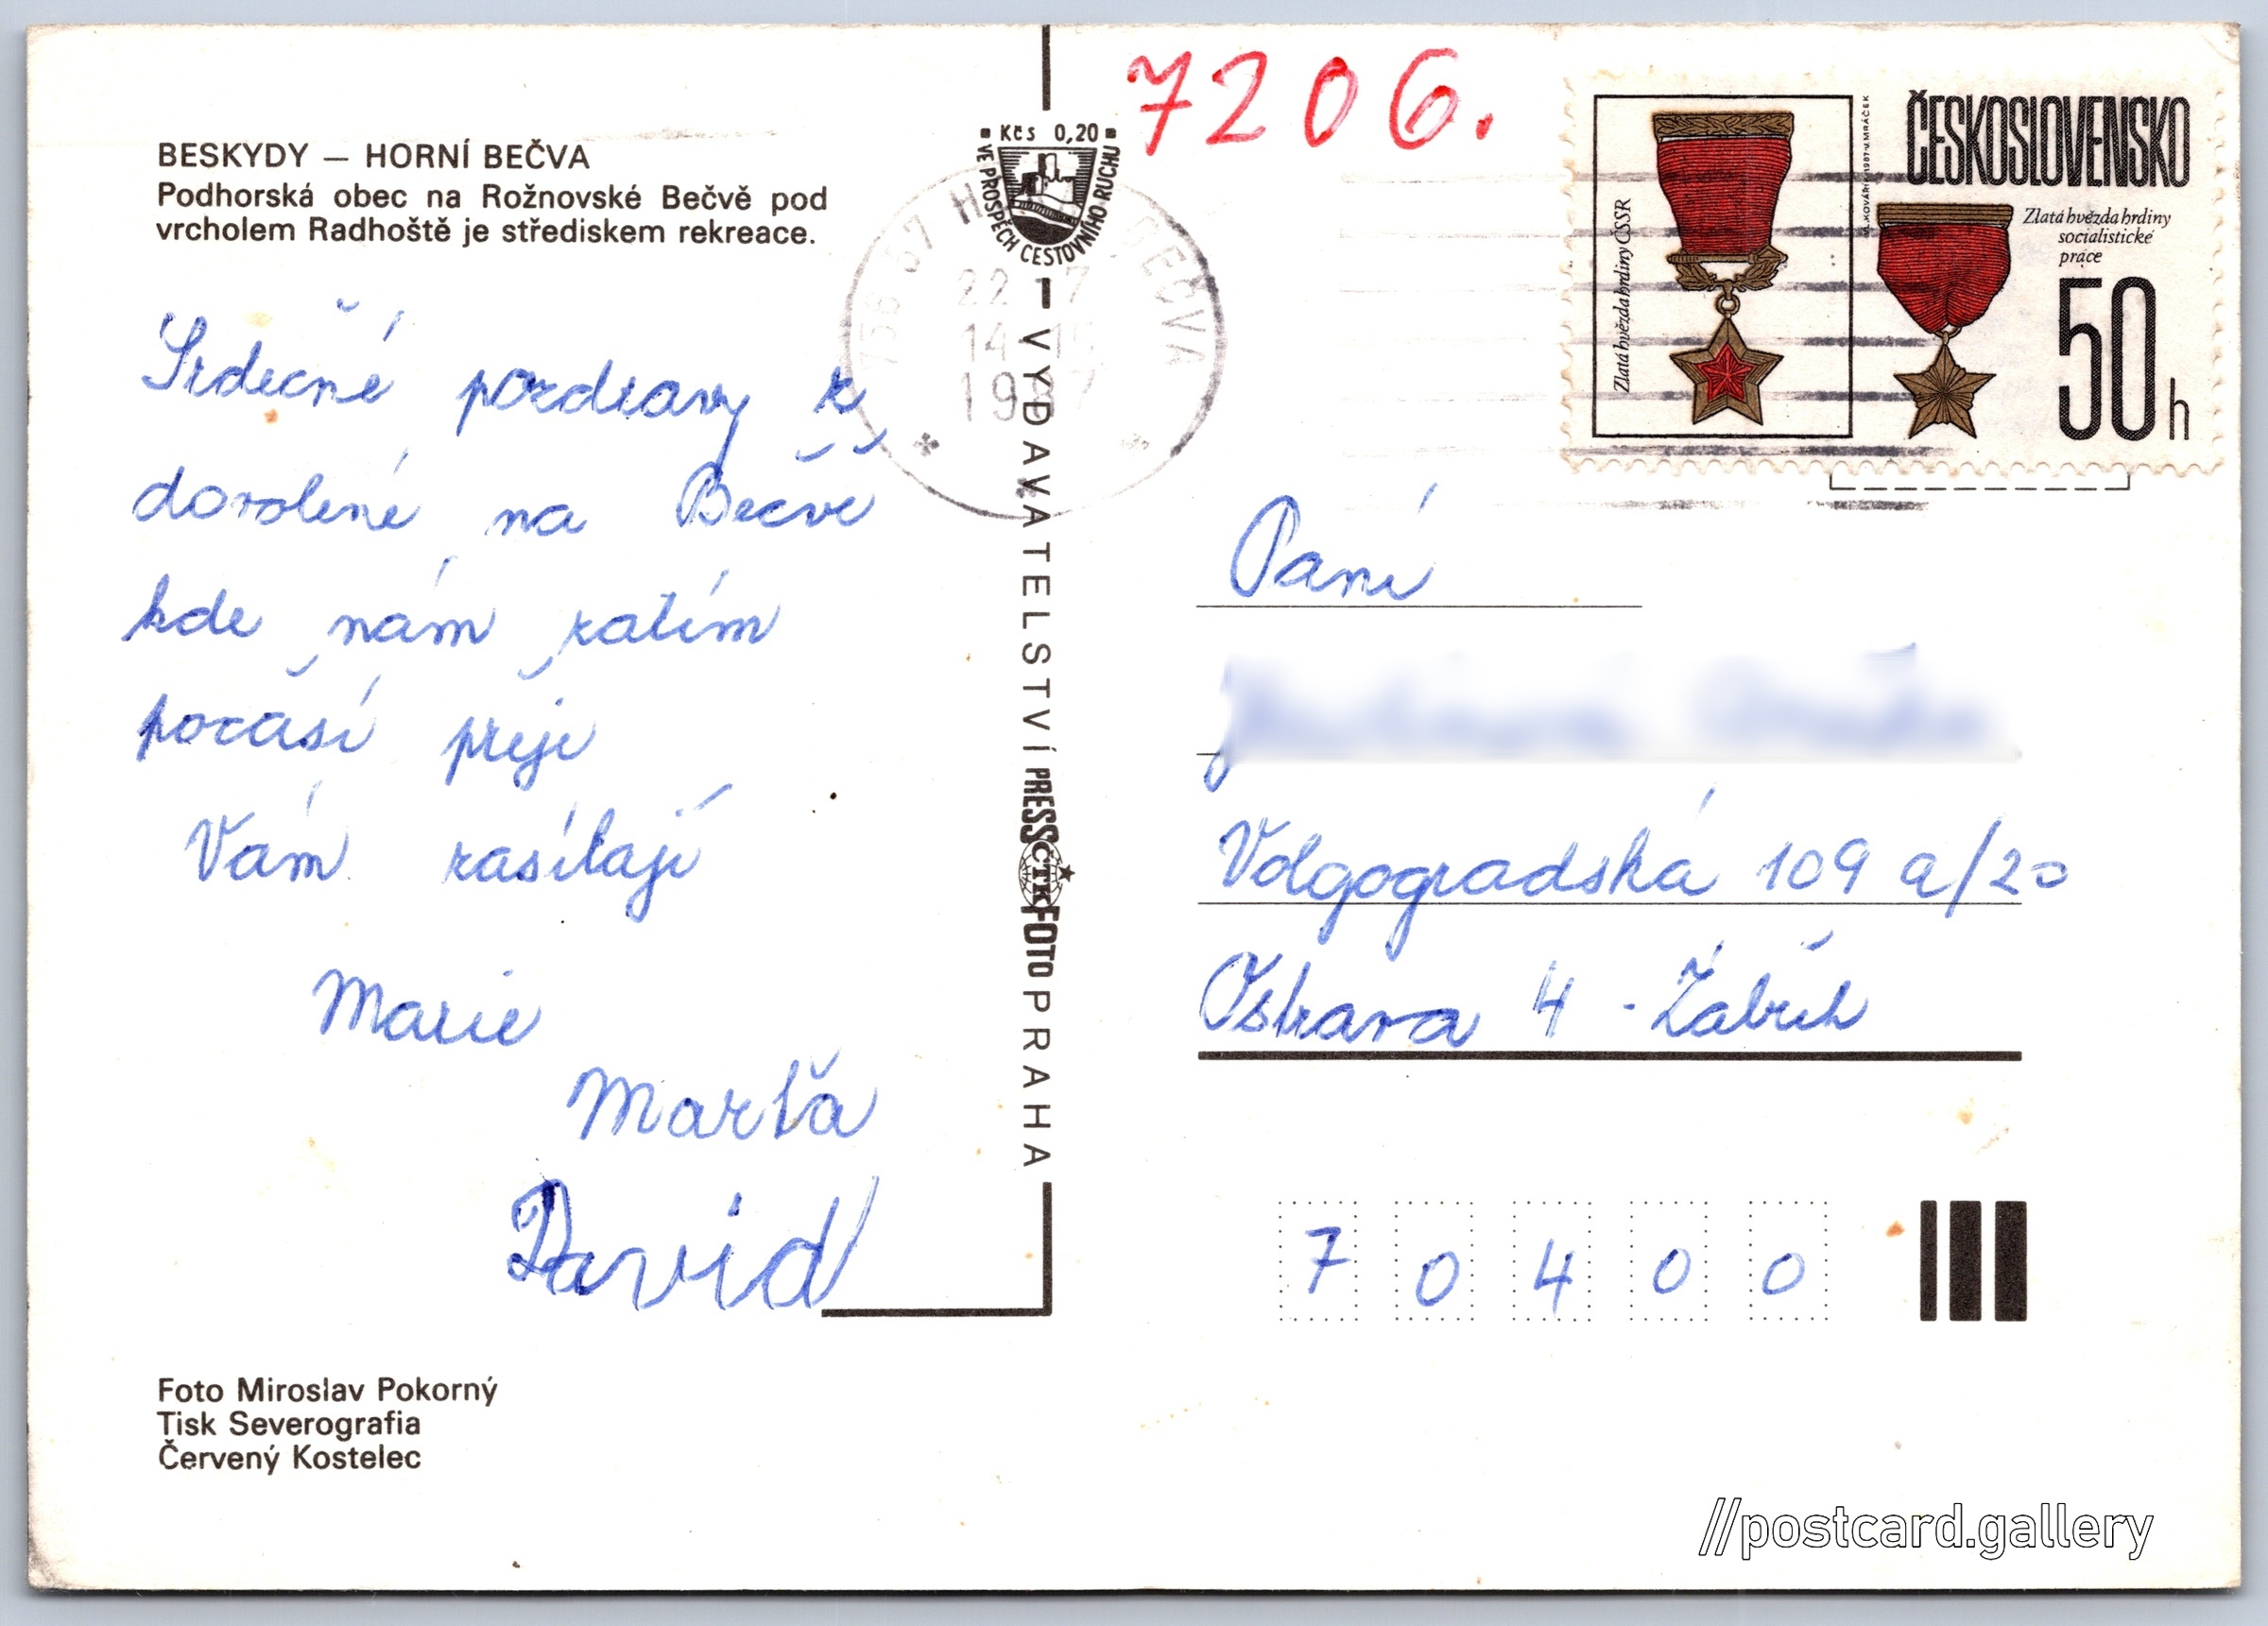 BESKYDY — HORNÍ BEČVA
Podhorská obec na Rožnovské Bečvě pod
vrcholem Radhoště je střediskem rekreace.
Srdečné pozdravy z
dovolené na Bečvě
kde nám zatím
počasí přeje
Vám zasílají
Marie
Marťa
David
Foto Miroslav Pokorný
Tisk Severografia
Červený Kostelec
Kčs 0,20
VE PROSPĚCH CESTOVNÍHO RUCHU
756 57 H BEČVA
22 7
14 15
1987
VYDAVATELSTVÍ PRESSFOTO PRAHA
ČTK
7206.
Zlatá hvězda hrdiny ČSSR
ČESKOSLOVENSKO
Zlatá hvězda hrdiny
socialistické
práce
50 h
Paní
Volgogradská 109 a/20
Ostrava 4 - Zábřeh
7 0 4 0 0
//postcard.gallery